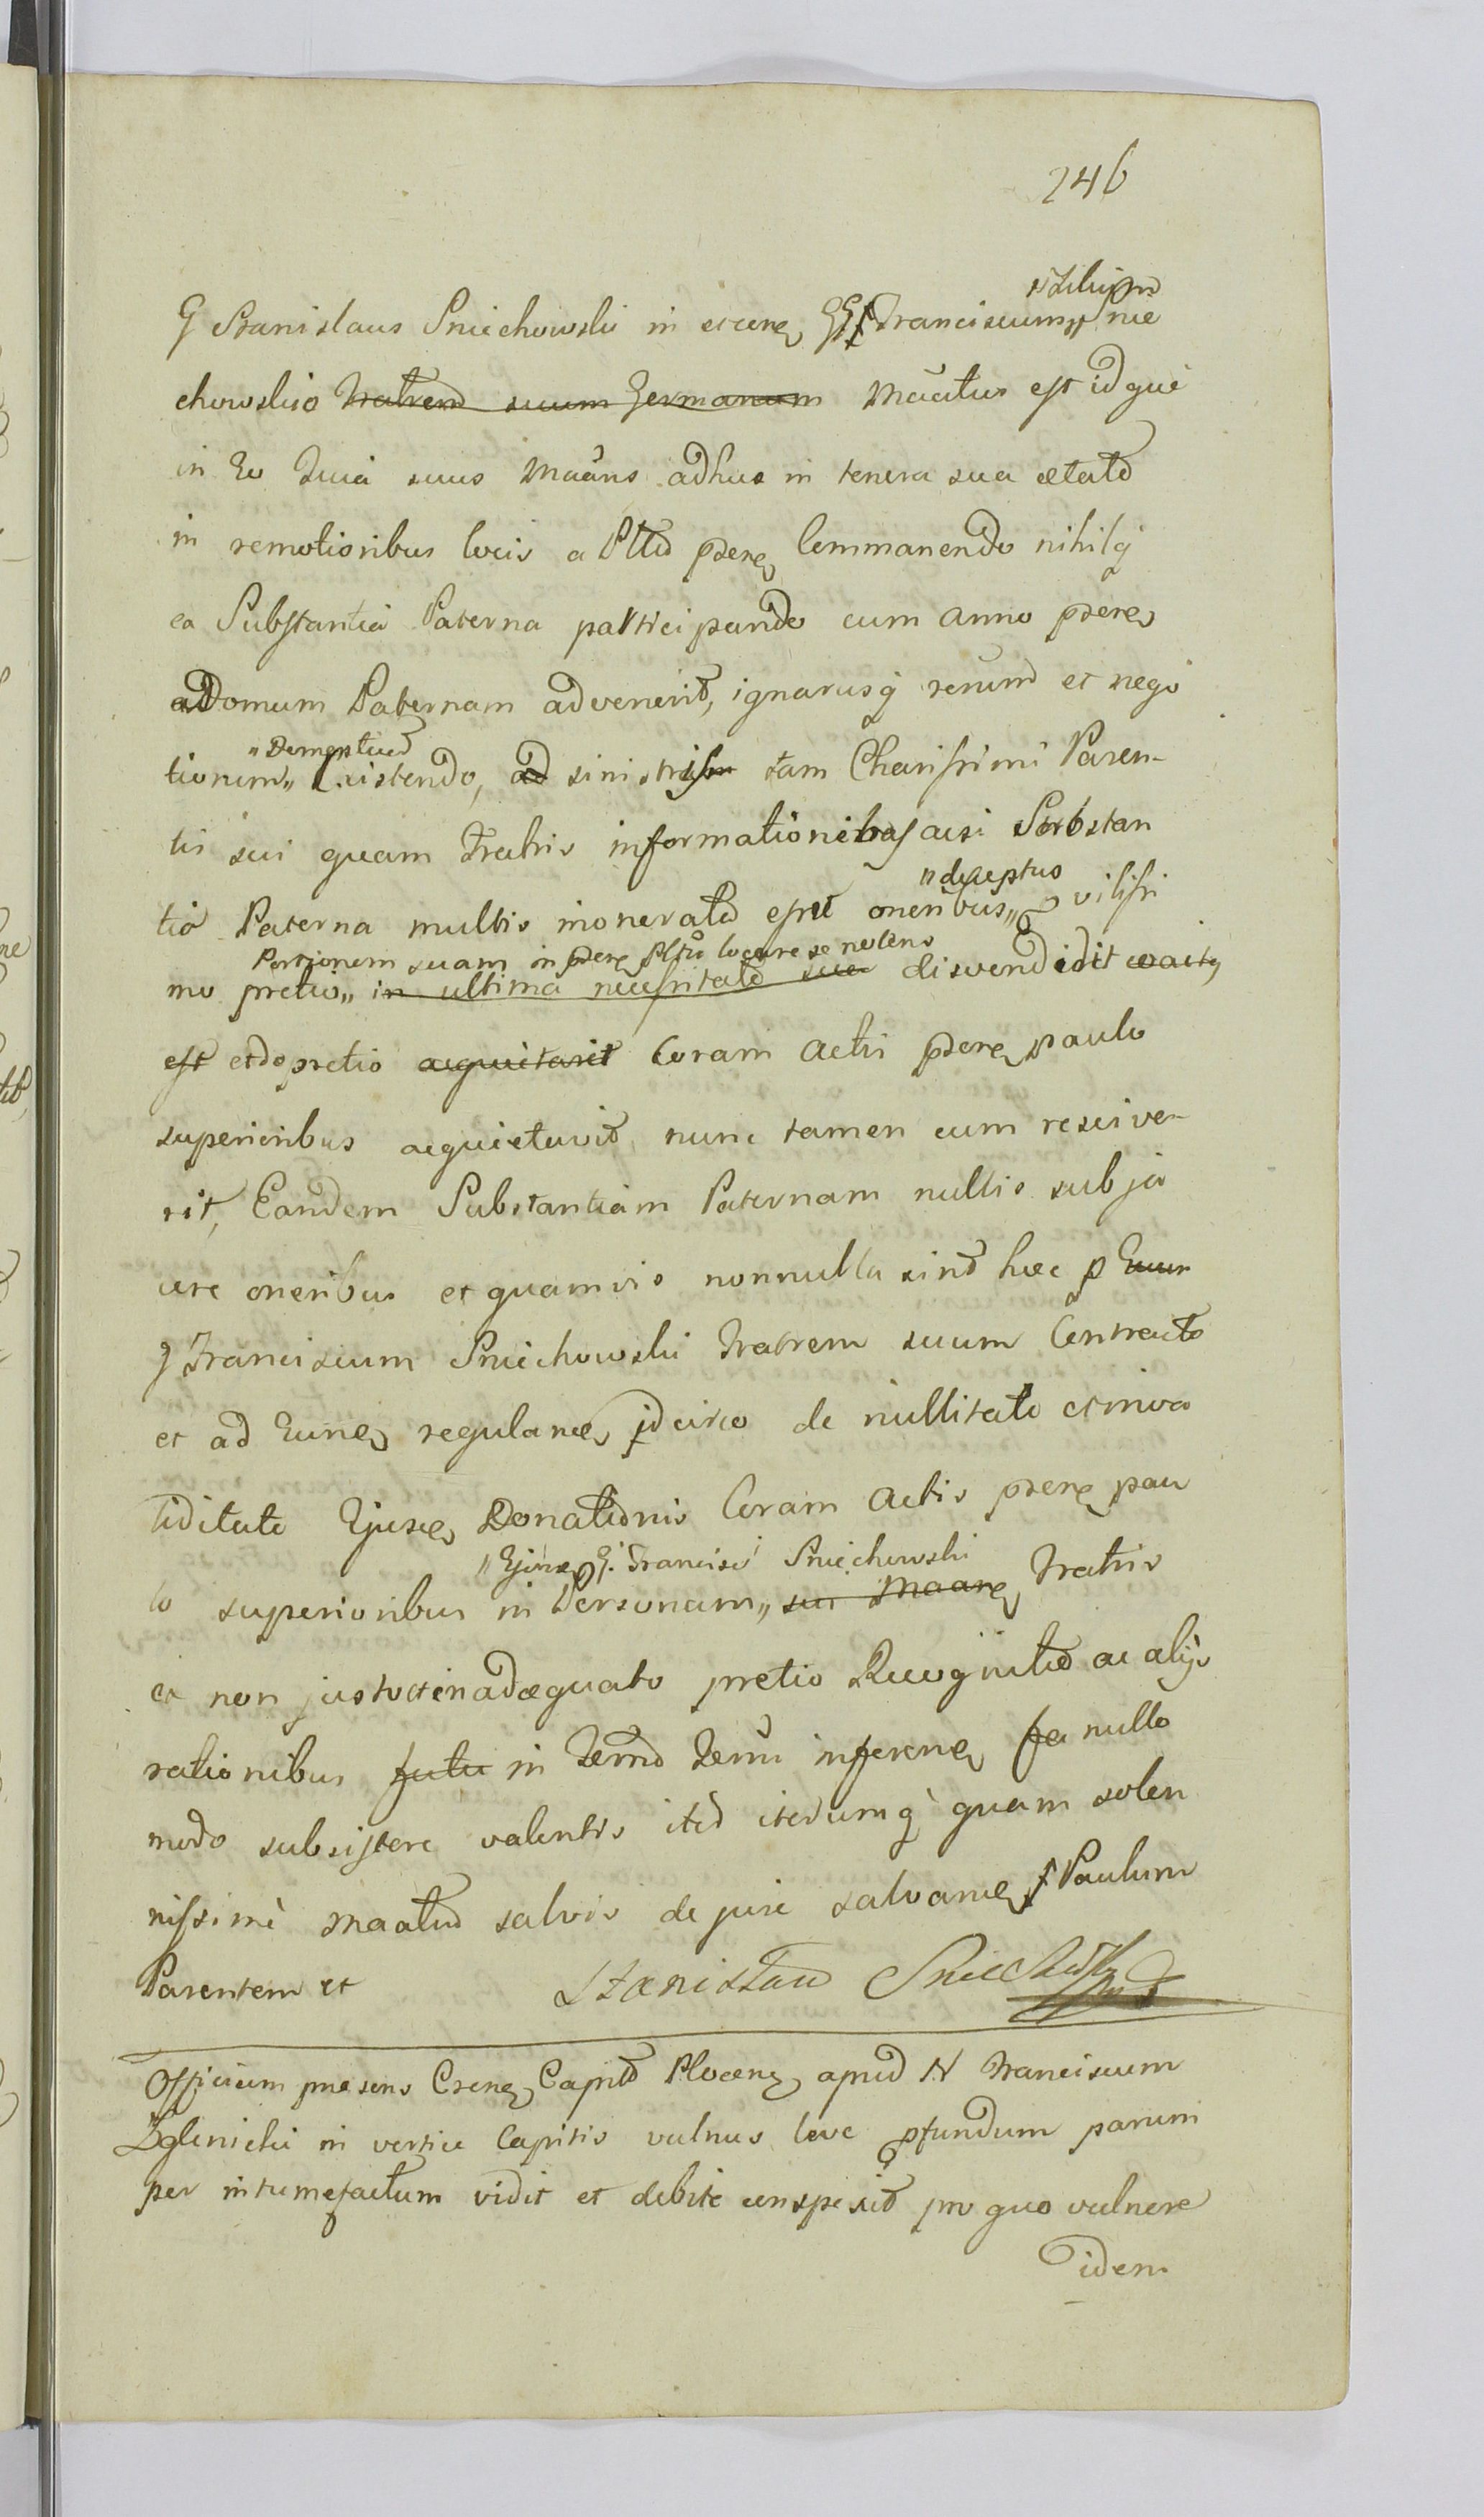 246
"Filium
G Stanislaus Sniechowski in et cone GG Franciscum,, Snie
chowskio Fratrem suum Germanum Maatus est idque
in Eo Quia suus Maans adhuc in tenera sua ætate
in remotioribus locis a Pltu psene Commanendo nihilq
ea Substantia Paterna participando cum anno psene
ad Domum Paternam advenerit, ignarusq rerum et nego
tiorum,, Existendo, ad sinistris tam Charissimi Paren-
tis sui quam Fratris informationibus acsi Substan
"deceptus
tia Paterna multis inonerata esset oneribus,, vilissi
Portionem suam in psene Pltu locare se nolens
mo pretio,, in ultima necessitate sua disvendidit
est et do pretio acquitavit Coram Actis psene paulo
superioribus acquietavit nunc tamen cum rescive-
rit, Eandem Substantiam Paternam nullis subja
cere oneribus et quamvis nonnulla sint hæc p Eum
G Franciscum Sniechowski Fratrem suum Contracta
et ad Eune regulane idcirco de nullitate et inva
liditate Ejusce Donationis Coram Actis psene pau
"Ejusce G. Francisci Sniechowski
lo superioribus in Personam,, sui Maane Fratris
et non justo et inadæquato pretio Recognitæ ac alijs
rationibus futu in Termo Termi inferene fa nullo
modo subsistere valentis item iterumq quam solen
nissime maatur salvis de jure salvane Paulum
Parentem et
Stanisław Sniechowski
Officium præsens Csene Capitle Plocene apud N Franciscum
Zglinicki in vertice Capitis vulnus leve pfundum parum
per intumefactum vidit et debite conspexit pro quo vulnere
idem